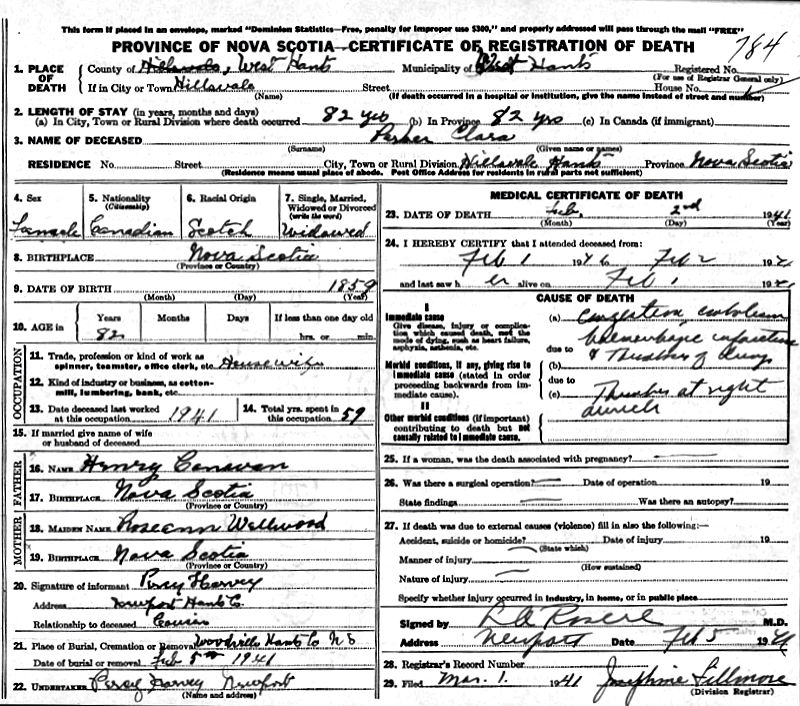 This form if placed in an envelope, marked "Dominion Statistics—Free, penalty for improper use $300," and properly addressed will pass through the mail "FREE"
PROVINCE OF NOVA SCOTIA—CERTIFICATE OF REGISTRATION OF DEATH
784
1. PLACE OF DEATH
County of Hillsvale, West Hants Municipality of West Hants Registered No.
(For use of Registrar General only)
If in City or Town Hillsvale Street House No.
(Name) (If death occurred in a hospital or institution, give the name instead of street and number)
2. LENGTH OF STAY (in years, months and days)
(a) In City, Town or Rural Division where death occurred 82 yrs (b) In Province 82 yrs (c) In Canada (if immigrant)
3. NAME OF DECEASED Parker Clara
(Surname) (Given name or names)
RESIDENCE No. Street City, Town or Rural Division Hillsvale Hants Province Nova Scotia
(Residence means usual place of abode. Post Office Address for residents in rural parts not sufficient)
4. Sex 5. Nationality (Citizenship) 6. Racial Origin 7. Single, Married, Widowed or Divorced (write the word)
Female Canadian Scotch Widowed
8. BIRTHPLACE Nova Scotia
(Province or Country)
9. DATE OF BIRTH 1859
(Month) (Day) (Year)
10. AGE in Years Months Days If less than one day old
82 hrs. or min.
OCCUPATION
11. Trade, profession or kind of work as spinner, teamster, office clerk, etc. Housewife
12. Kind of industry or business, as cotton-mill, lumbering, bank, etc.
13. Date deceased last worked at this occupation 1941 14. Total yrs. spent in this occupation 59
15. If married give name of wife or husband of deceased
FATHER
16. NAME Henry Canavan
17. BIRTHPLACE Nova Scotia
(Province or Country)
MOTHER
18. MAIDEN NAME Roseann Wellwood
19. BIRTHPLACE Nova Scotia
(Province or Country)
20. Signature of informant Percy Harvey
Address Newport Hants Co.
Relationship to deceased Cousin
21. Place of Burial, Cremation or Removal Woodville Hants Co N S
Date of burial or removal Feb 5th 1941
22. UNDERTAKER Percy Harvey Newport
(Name and address)
MEDICAL CERTIFICATE OF DEATH
23. DATE OF DEATH Feb. 2nd 1941
(Month) (Day) (Year)
24. I HEREBY CERTIFY that I attended deceased from:
Feb 1 194 Feb 2 194
and last saw h er alive on Feb 1 194
CAUSE OF DEATH
I
Immediate cause
Give disease, injury or complication which caused death, not the mode of dying, such as heart failure, asphyxia, asthenia, etc.
(a)
due to
Morbid conditions, if any, giving rise to immediate cause (stated in order proceeding backwards from immediate cause).
(b)
due to
(c) Thrombus at right auricle
II
Other morbid conditions (if important) contributing to death but not causally related to immediate cause.
25. If a woman, was the death associated with pregnancy?
26. Was there a surgical operation? Date of operation 19
State findings Was there an autopsy?
27. If death was due to external causes (violence) fill in also the following:—
Accident, suicide or homicide? Date of injury 19
(State which)
Manner of injury
(How sustained)
Nature of injury
Specify whether injury occurred in industry, in home, or in public place
Signed by M.D.
Address Newport Date Feb 5 1941
28. Registrar's Record Number
29. Filed Mar. 1. 1941 Josephine Fillmore
(Division Registrar)